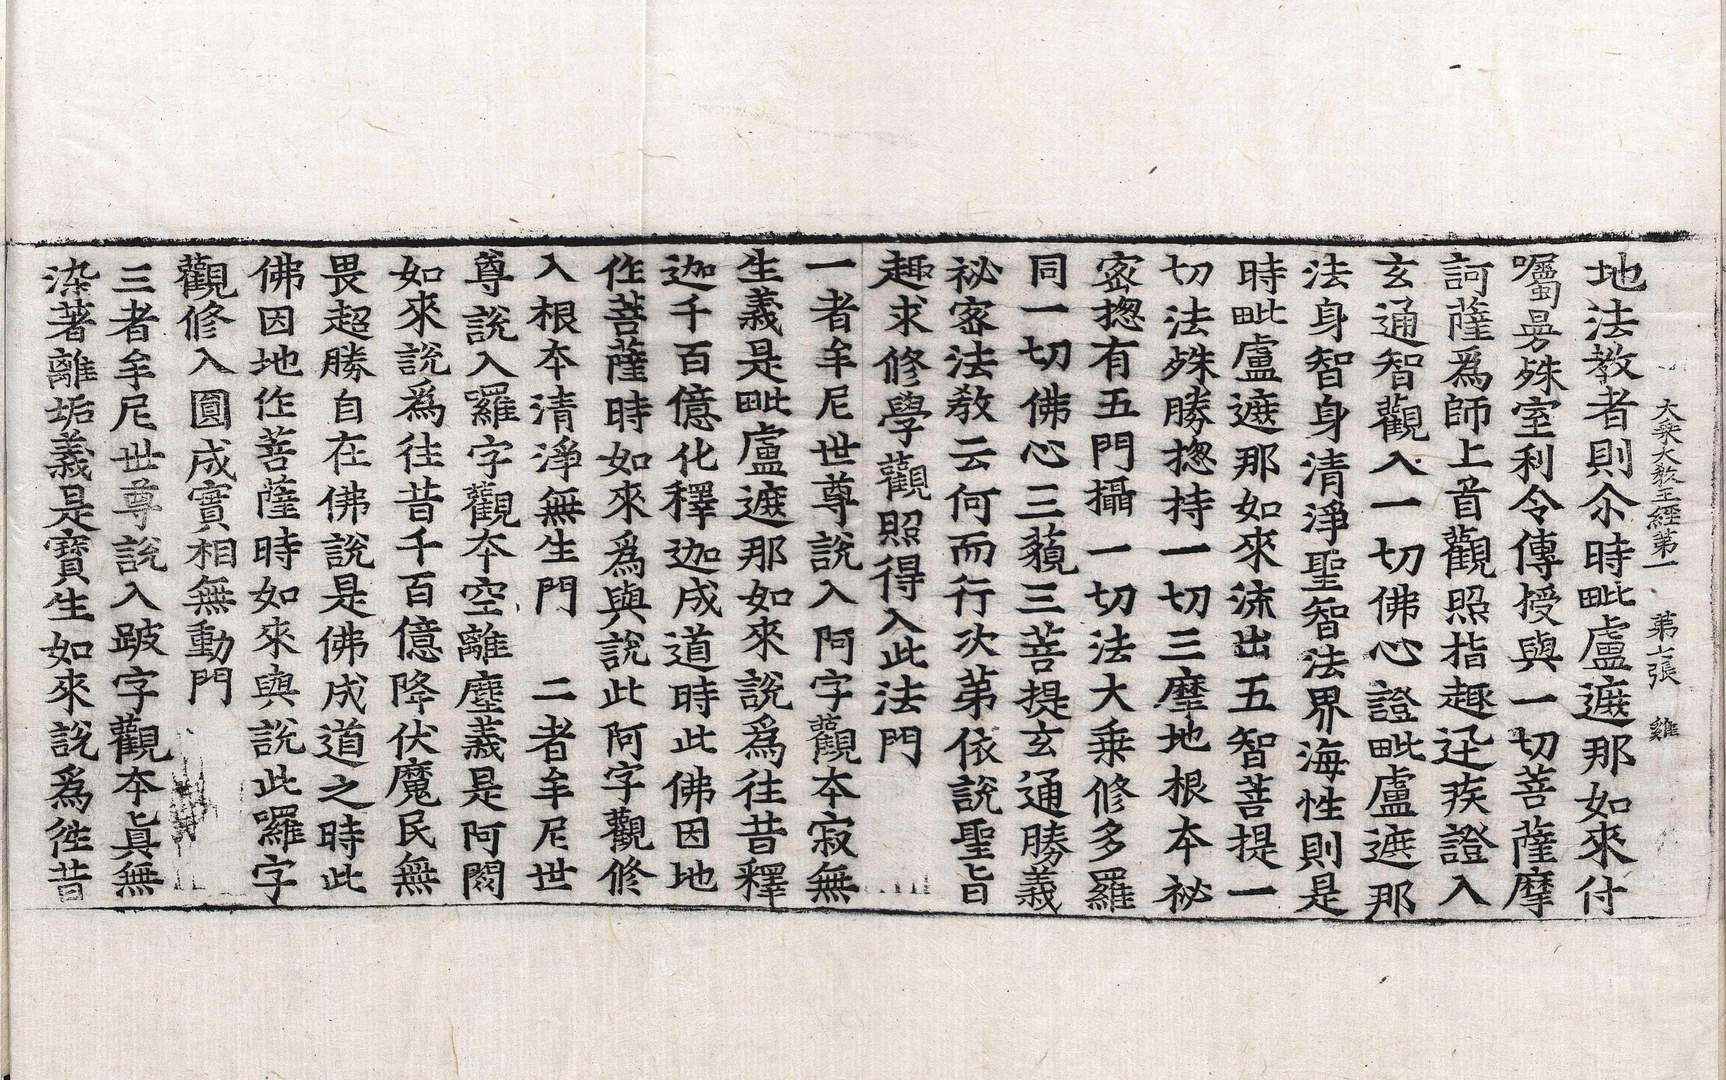 大乘大教王經第一　第七張　雞
地法教者則尒時毗盧遮那如來付
囑曼殊室利令傳授與一切菩薩摩
訶薩爲師上首觀照指趣迋疾證入
玄通智觀入一切佛心證毗盧遮那
法身智身清淨聖智法界海性則是
時毗盧遮那如來流出五智菩提一
切法殊勝揔持一切三摩地根本祕
密揔有五門攝一切法大乗修多羅
同一切佛心三藐三菩提玄通勝義
祕密法教云何而行次第依說聖旨
趣求修學觀照得入此法門
一者牟尼世尊說入阿字觀本寂無
生義是毗盧遮那如來說爲往昔釋
迦千百億化釋迦成道時此佛因地
作菩薩時如來爲與說此阿字觀修
入根本清淨無生門　二者牟尼世
尊說入囉字觀本空離塵義是阿閦
如來說爲往昔千百億降伏魔民無
畏超勝自在佛說是佛成道之時此
佛因地作菩薩時如來與說此囉字
觀修入圓成實相無動門
三者牟尼世尊說入跛字觀本眞無
染著離垢義是寶生如來說爲往昔